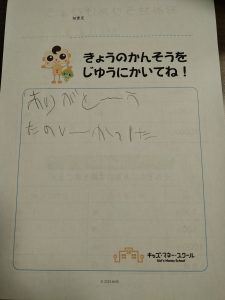 なまえ
きょうのかんそうを
じゆうにかいてね！
ありがとーう
たのしーかった
キッズ・マネー・スクール
Kid's Money School